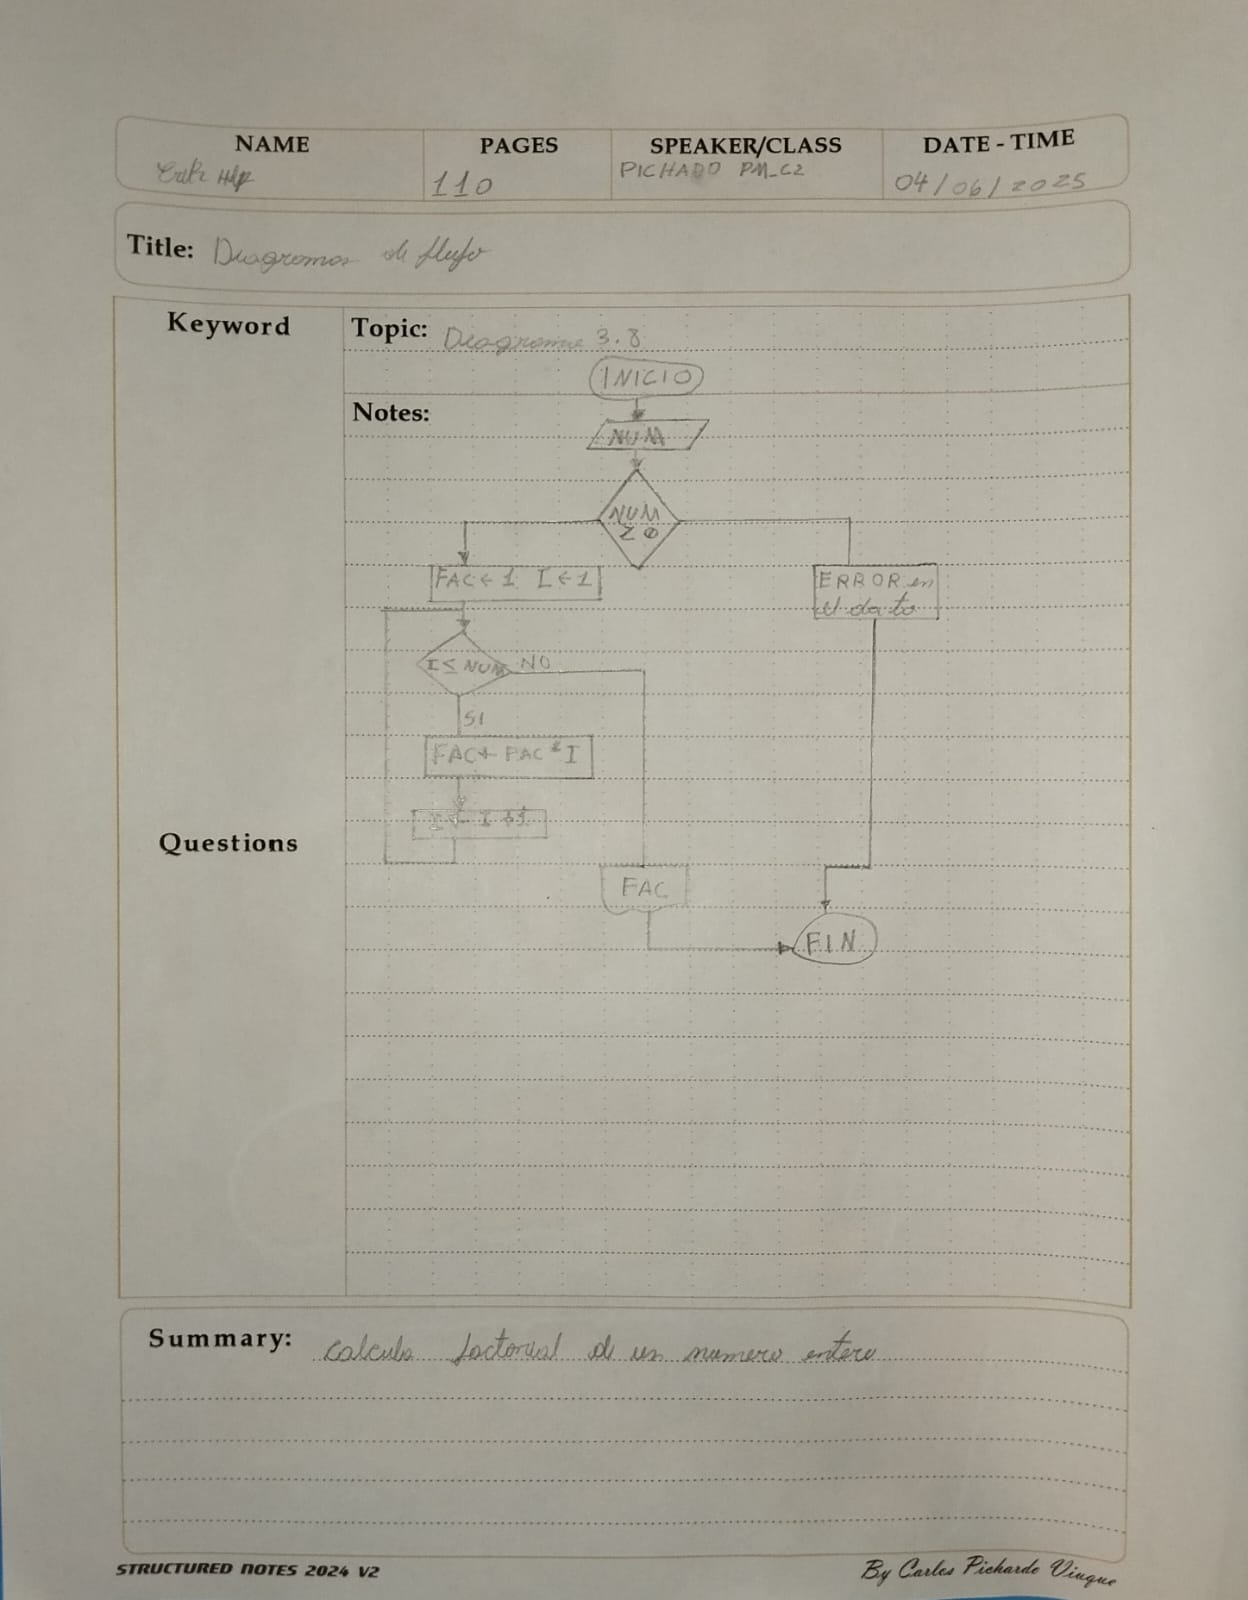 NAME PAGES SPEAKER/CLASS DATE - TIME
110 PICHADO PM_C2 04/06/2025
Title: Diagramas de flujo
Keyword
Topic: Diagrama 3.8
INICIO
Notes:
NUM
NUM
≥ 0
FAC ← 1 I ← 1
ERROR en
el dato
I ≤ NUM NO
SI
FAC ← FAC * I
I ← I + 1
Questions
FAC
FIN
Summary: calcula factorial de un numero entero
STRUCTURED NOTES 2024 V2
By Carlos Pichardo Viuque